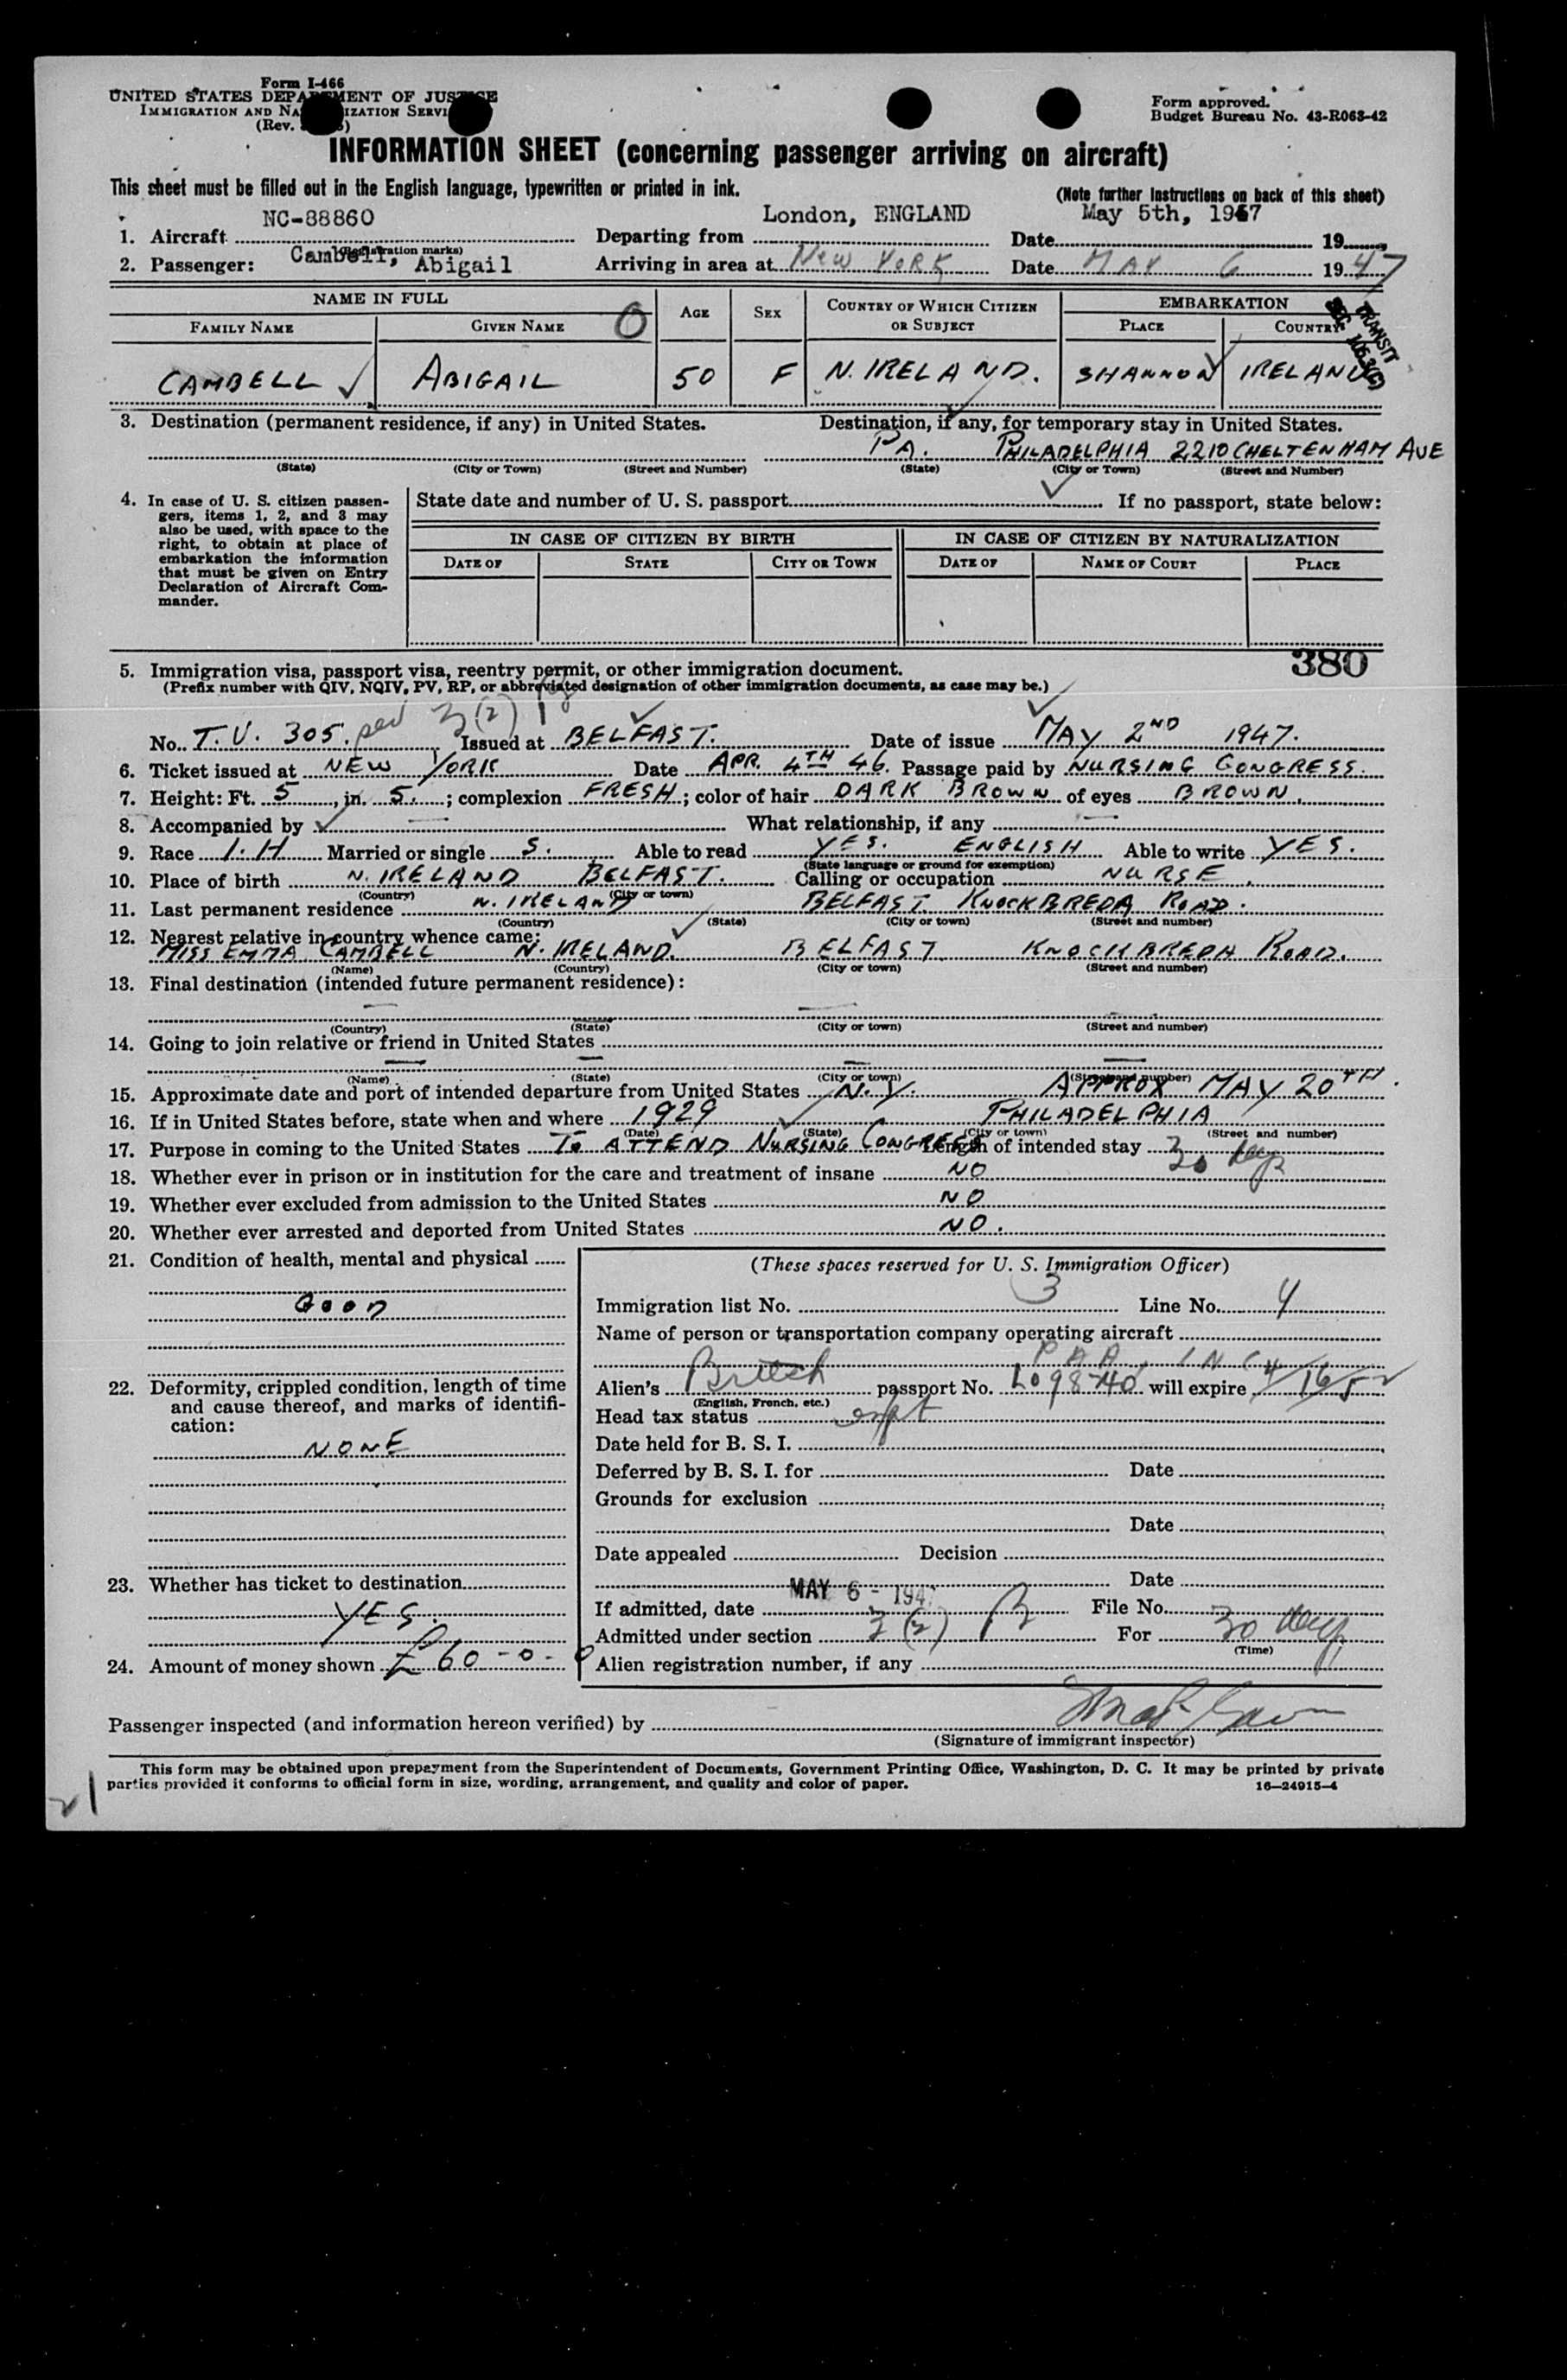 Form I-466
UNITED STATES DEPARTMENT OF JUSTICE
IMMIGRATION AND NATURALIZATION SERVICE
(Rev.
Form approved.
Budget Bureau No. 43-R063-42
INFORMATION SHEET (concerning passenger arriving on aircraft)
This sheet must be filled out in the English language, typewritten or printed in ink.
(Note further instructions on back of this sheet)
1. Aircraft NC-88860 (Registration marks) Departing from London, ENGLAND Date May 5th, 1947 19
2. Passenger: Cambell, Abigail Arriving in area at NEW YORK Date MAY 6 1947
NAME IN FULL AGE SEX COUNTRY OF WHICH CITIZEN OR SUBJECT EMBARKATION
FAMILY NAME GIVEN NAME O PLACE COUNTRY
TRANSIT
CAMBELL ABIGAIL 50 F N. IRELAND. SHANNON IRELAND
3. Destination (permanent residence, if any) in United States. Destination, if any, for temporary stay in United States.
PA. PHILADELPHIA 2210 CHELTENHAM AVE
(State) (City or Town) (Street and Number) (State) (City or Town) (Street and Number)
4. In case of U. S. citizen passengers, items 1, 2, and 3 may also be used, with space to the right, to obtain at place of embarkation the information that must be given on Entry Declaration of Aircraft Commander.
State date and number of U. S. passport If no passport, state below:
IN CASE OF CITIZEN BY BIRTH IN CASE OF CITIZEN BY NATURALIZATION
DATE OF STATE CITY OR TOWN DATE OF NAME OF COURT PLACE
380
5. Immigration visa, passport visa, reentry permit, or other immigration document.
(Prefix number with QIV, NQIV, PV, RP, or abbreviated designation of other immigration documents, as case may be.)
No. T.V. 305. 3(2) Issued at BELFAST. Date of issue MAY 2ND 1947.
6. Ticket issued at NEW YORK Date APR. 4TH 46. Passage paid by NURSING CONGRESS.
7. Height: Ft. 5, in. 5. ; complexion FRESH ; color of hair DARK BROWN of eyes BROWN.
8. Accompanied by — What relationship, if any —
9. Race I.H Married or single S. Able to read YES. ENGLISH Able to write YES.
(State language or ground for exemption)
10. Place of birth N. IRELAND BELFAST. Calling or occupation NURSE.
(Country) (City or town)
11. Last permanent residence N. IRELAND BELFAST KNOCKBREDA ROAD.
(Country) (State) (City or town) (Street and number)
12. Nearest relative in country whence came:
MISS EMMA CAMBELL N. IRELAND. BELFAST KNOCKBREDA ROAD.
(Name) (Country) (City or town) (Street and number)
13. Final destination (intended future permanent residence):
(Country) (State) (City or town) (Street and number)
14. Going to join relative or friend in United States
(Name) (State) (City or town) (Street and number)
15. Approximate date and port of intended departure from United States N.Y. APPROX MAY 20TH.
16. If in United States before, state when and where 1929 PHILADELPHIA
(Date) (State) (City or town) (Street and number)
17. Purpose in coming to the United States TO ATTEND NURSING CONGRESS Length of intended stay 30 days
18. Whether ever in prison or in institution for the care and treatment of insane NO
19. Whether ever excluded from admission to the United States NO
20. Whether ever arrested and deported from United States NO.
21. Condition of health, mental and physical
GOOD
22. Deformity, crippled condition, length of time and cause thereof, and marks of identification:
NONE
23. Whether has ticket to destination
YES.
24. Amount of money shown £60-0-0
(These spaces reserved for U. S. Immigration Officer)
Immigration list No. 3 Line No. 4
Name of person or transportation company operating aircraft
PAA, INC
Alien's British passport No. L098740 will expire 4/16/52
(English, French, etc.)
Head tax status expt
Date held for B. S. I.
Deferred by B. S. I. for Date
Grounds for exclusion
Date
Date appealed Decision
Date
If admitted, date MAY 6 - 194 File No.
Admitted under section 3(2) B For 30 days
(Time)
Alien registration number, if any
Passenger inspected (and information hereon verified) by
(Signature of immigrant inspector)
This form may be obtained upon prepayment from the Superintendent of Documents, Government Printing Office, Washington, D. C. It may be printed by private
parties provided it conforms to official form in size, wording, arrangement, and quality and color of paper. 16—24915-4
21